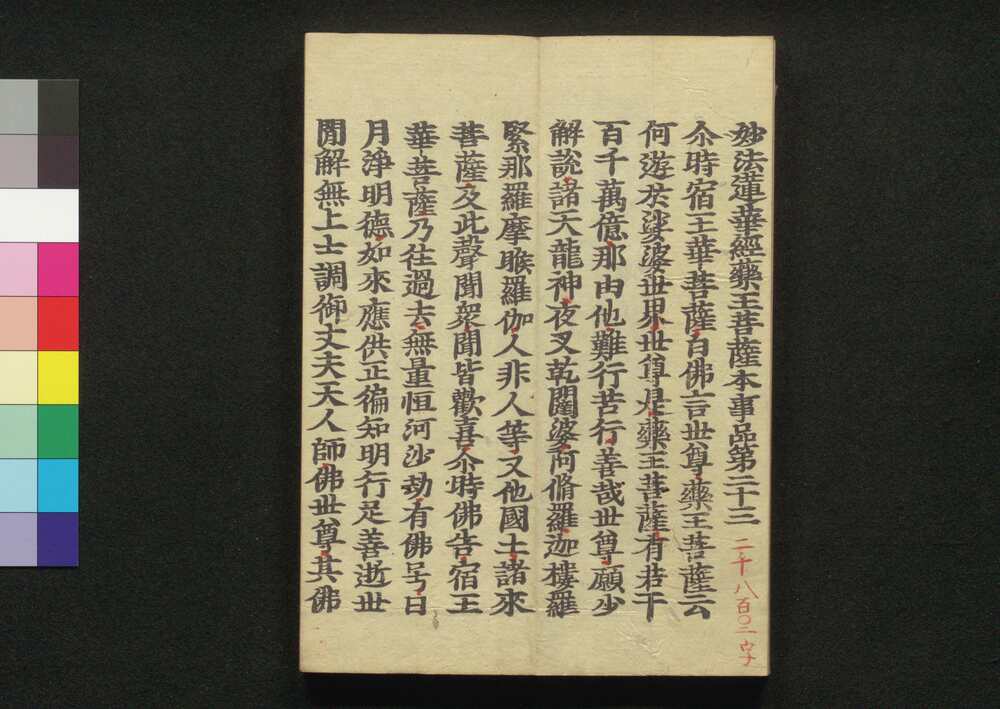 妙法蓮華經藥王菩薩本事品第二十三 二千八百〇二字
尒時宿王華菩薩白佛言世尊藥王菩薩云
何遊於娑婆世界世尊是藥王菩薩有若干
百千萬億那由他難行苦行善哉世尊願少
解説諸天龍神夜叉乾闥婆阿脩羅迦樓羅
緊那羅摩睺羅伽人非人等又他國土諸來
菩薩及此聲聞衆聞皆歡喜尒時佛告宿王
華菩薩乃往過去無量恒河沙劫有佛号曰
月淨明德如來應供正徧知明行足善逝世
閒解無上士調御丈夫天人師佛世尊其佛